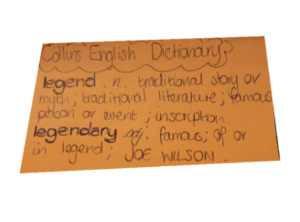 Collins English Dictionary?
legend . n. traditional story or
myth; traditional literature; famous
person or event; inscription
legendary adj. famous; of or
in legend; JOE WILSON.